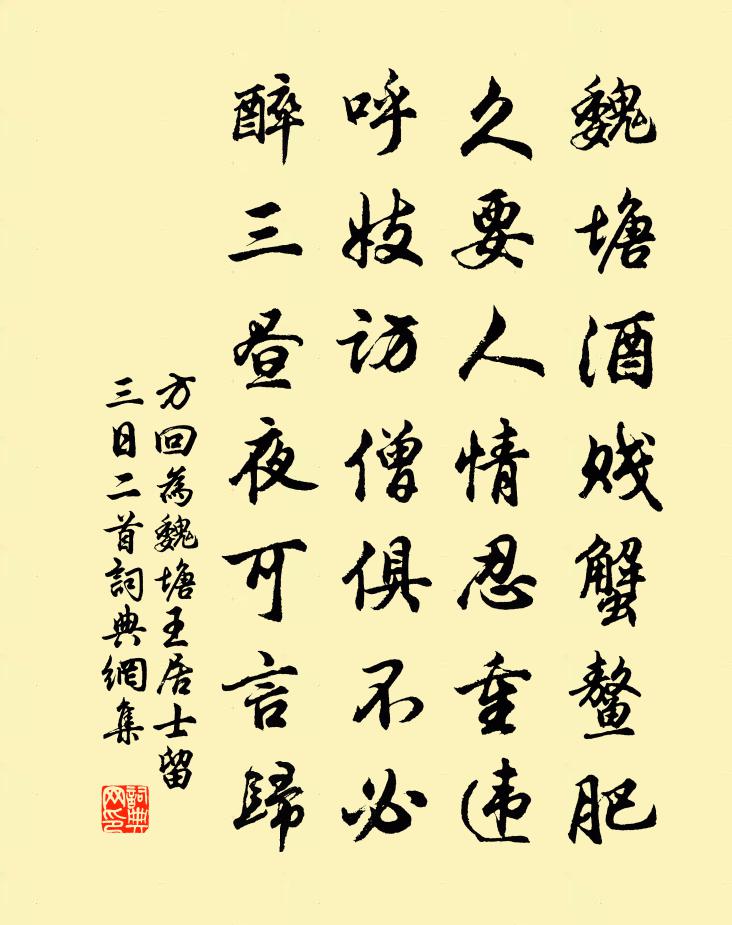 魏塘酒贱蟹鳌肥
久要人情忍重违
呼妓访僧俱不必
醉三昼夜可言歸
方回為魏塘王居士留
三日二首詞典網集
詞典网印